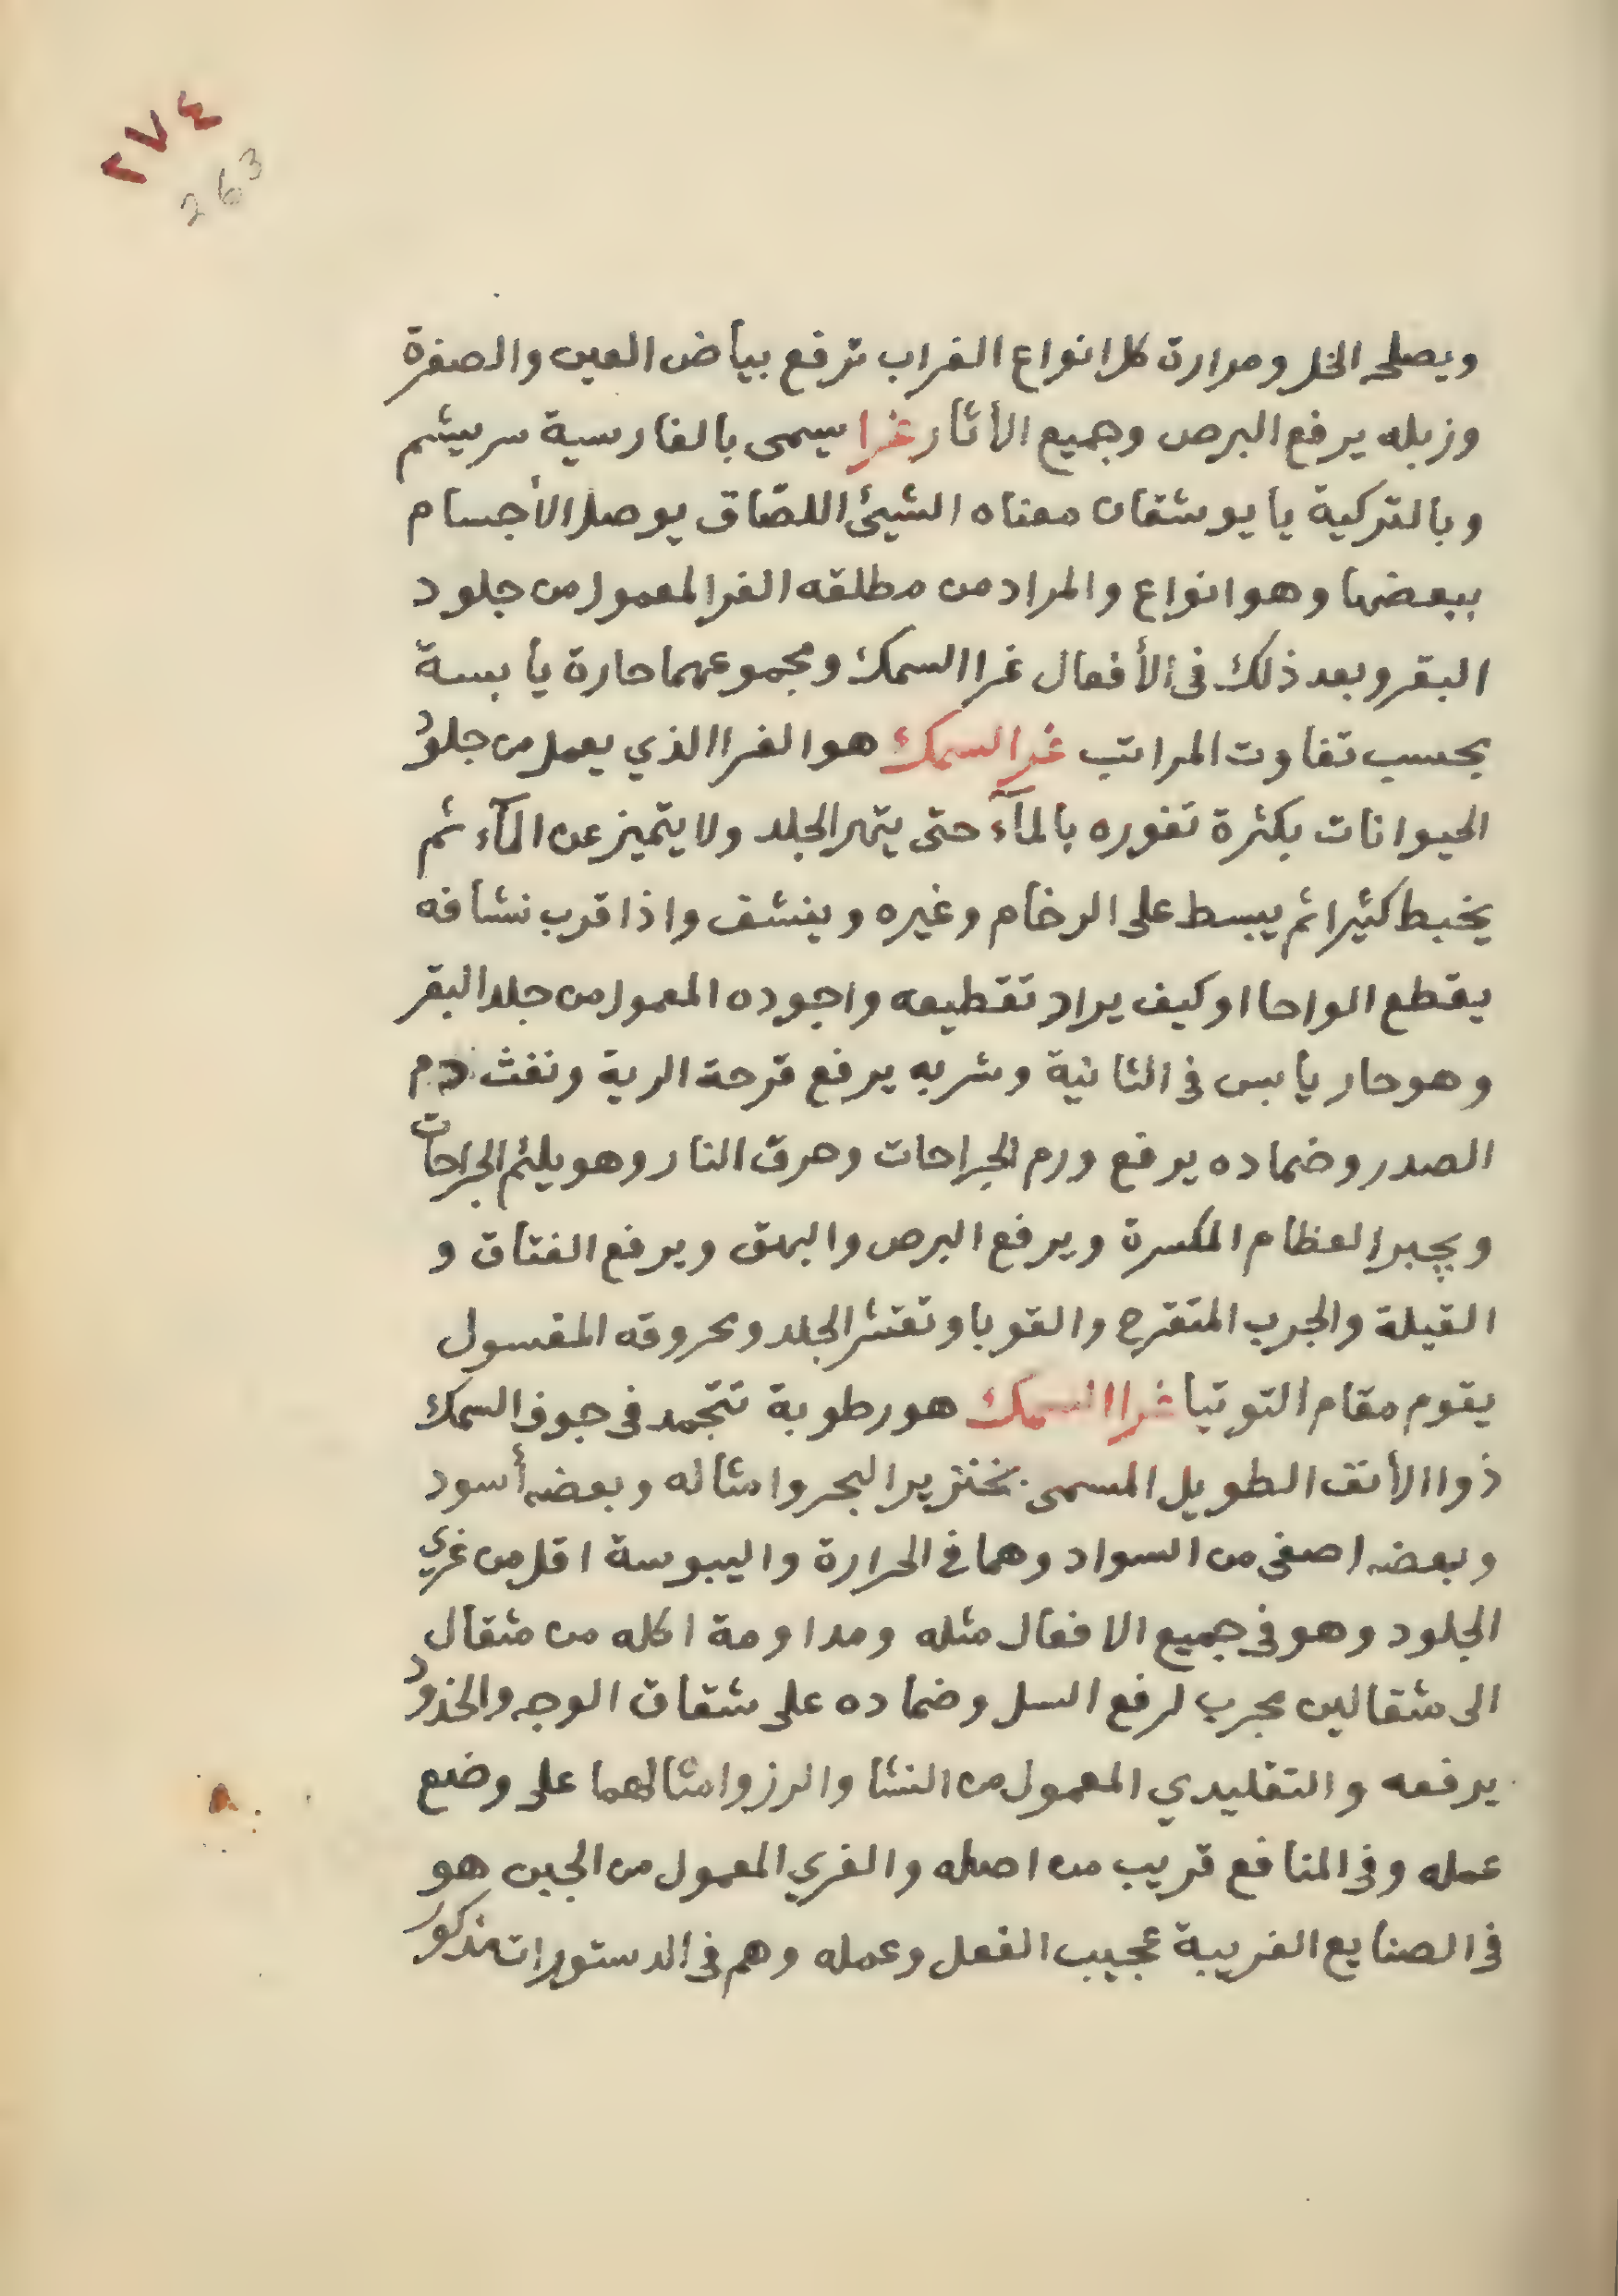 ٢٧٤
263
ويصلحه الخل ومرارة كل انواع الغراب ترفع بياض العين والصفرة
وزبله يرفع البرص وجميع الأثار غرا يسمى بالفارسية سريشم
وبالتركية يا يوشقان معناه الشيئ اللصّاق يوصل الأجسام
ببعضها وهو انواع والمراد من مطلقه الغرا المعمول من جلود
البقر وبعد ذلك فى الأفعال غرا السمك ومجموعهما حارة يابسة
بحسب تفاوت المراتب غرا السمك هو الغرا الذي يعمل من جلود
الحيوانات بكثرة تغوره بالمآء حتى يتهر الجلد ولا يتميز عن المآء ثم
يخبط كثيرا ثم يبسط على الرخام وغيره وينشف واذا قرب نشافه
يقطع الواحا او كيف يراد تقطيعه واجوده المعمول من جلد البقر
وهو حار يابس فى الثانية وشربه يرفع قرحة الرية ونفث دم
الصدر وضماده يرفع ورم الجراحات وحرق النار وهو يلئم الجراحات
ويجبر العظام المكسرة ويرفع البرص والبهق ويرفع الفتاق و
القيلة والجرب المتقرح والقوبا وتقشر الجلد ومحروقه المغسول
يقوم مقام التوتيا غرا السمك هو رطوبة تتجمد فى جوف السمك
ذوا الأنف الطويل المسمى بخنزير البحر وامثاله وبعضه أسود
وبعضه اصفى من السواد وهما فى الحرارة واليبوسة اقل من غري
الجلود وهو فى جميع الافعال مثله ومداومة اكله من مثقال
الى مثقالين مجرب لرفع السل وضماده على شقاق الوجه والخدود
يرفعه والتقليدي المعمول من النشا والرز وامثالهما على وضع
عمله وفى المنافع قريب من اصله والغري المعمول من الجبن هو
فى الصنايع الغريبة عجيب الفعل وعمله وهم فى الدستورات مذكور